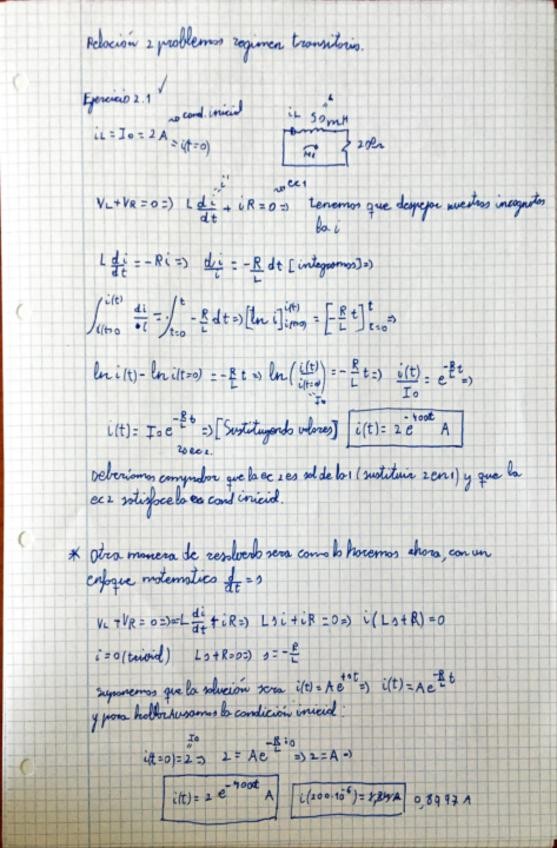 Relación 2 problemas regimen transitorio.
Ejercicio 2.1 ✓
iL = I₀ = 2 A → cond. inicial
= i(t=0)
iL 50mH
VL + VR = 0 => L di/dt + iR = 0 => → ec 1 tenemos que despejar nuestras incognitas
la i
L di/dt = -Ri => di/i = -R/L dt [integramos] =>
∫_{i(t=0)}^{i(t)} di/i = ∫_{t=0}^{t} -R/L dt => [ln i]_{i(t=0)}^{i(t)} = [-R/L t]_{t=0}^{t} =>
ln i(t) - ln i(t=0) = -R/L t => ln(i(t)/i(t=0)) = -R/L t => i(t)/I₀ = e^{-R/L t} =>
" I₀
i(t) = I₀ e^{-R/L t} => [Sustituyendo valores] i(t) = 2 e^{-400t} A
→ ec 2.
Deberiamos comprobar que la ec 2 es sol de la 1 (sustituir 2 en 1) y que la
ec 2 satisface la cond inicial.
* Otra manera de resolverlo sera como lo haremos ahora, con un
enfoque matematico d/dt = s
VL + VR = 0 => L di/dt + iR => Lsi + iR = 0 => i(Ls+R) = 0
i = 0 (trivial) Ls+R=0 => s = -R/L
Suponemos que la solución sera i(t) = Ae^{+st} => i(t) = Ae^{-R/L t}
y para hallar usamos la condición inicial:
I₀
"
i(t=0) = 2 => 2 = Ae^{-R/L·0} => 2 = A =>
i(t) = 2 e^{-400t} A i(200·10⁻⁶) = 0,8997 A